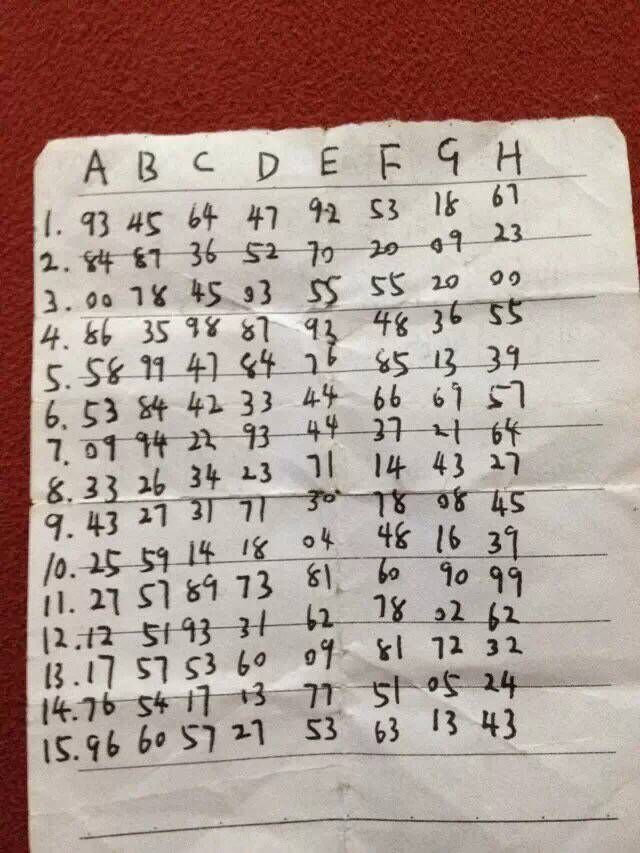 A B C D E F G H
1. 93 45 64 47 92 53 18 67
2. 84 87 36 52 70 20 09 23
3. 00 78 45 03 55 55 20 00
4. 86 35 98 87 93 48 36 55
5. 58 99 47 84 76 85 13 39
6. 53 84 42 33 44 66 69 57
7. 09 94 22 93 44 37 21 64
8. 33 26 34 23 71 14 43 27
9. 43 27 31 71 30 78 08 45
10. 25 59 14 18 04 48 16 39
11. 27 57 89 73 81 60 90 99
12. 12 51 93 31 62 78 02 62
13. 17 57 53 60 09 81 72 32
14. 76 54 17 13 77 51 05 24
15. 96 60 57 27 53 63 13 43